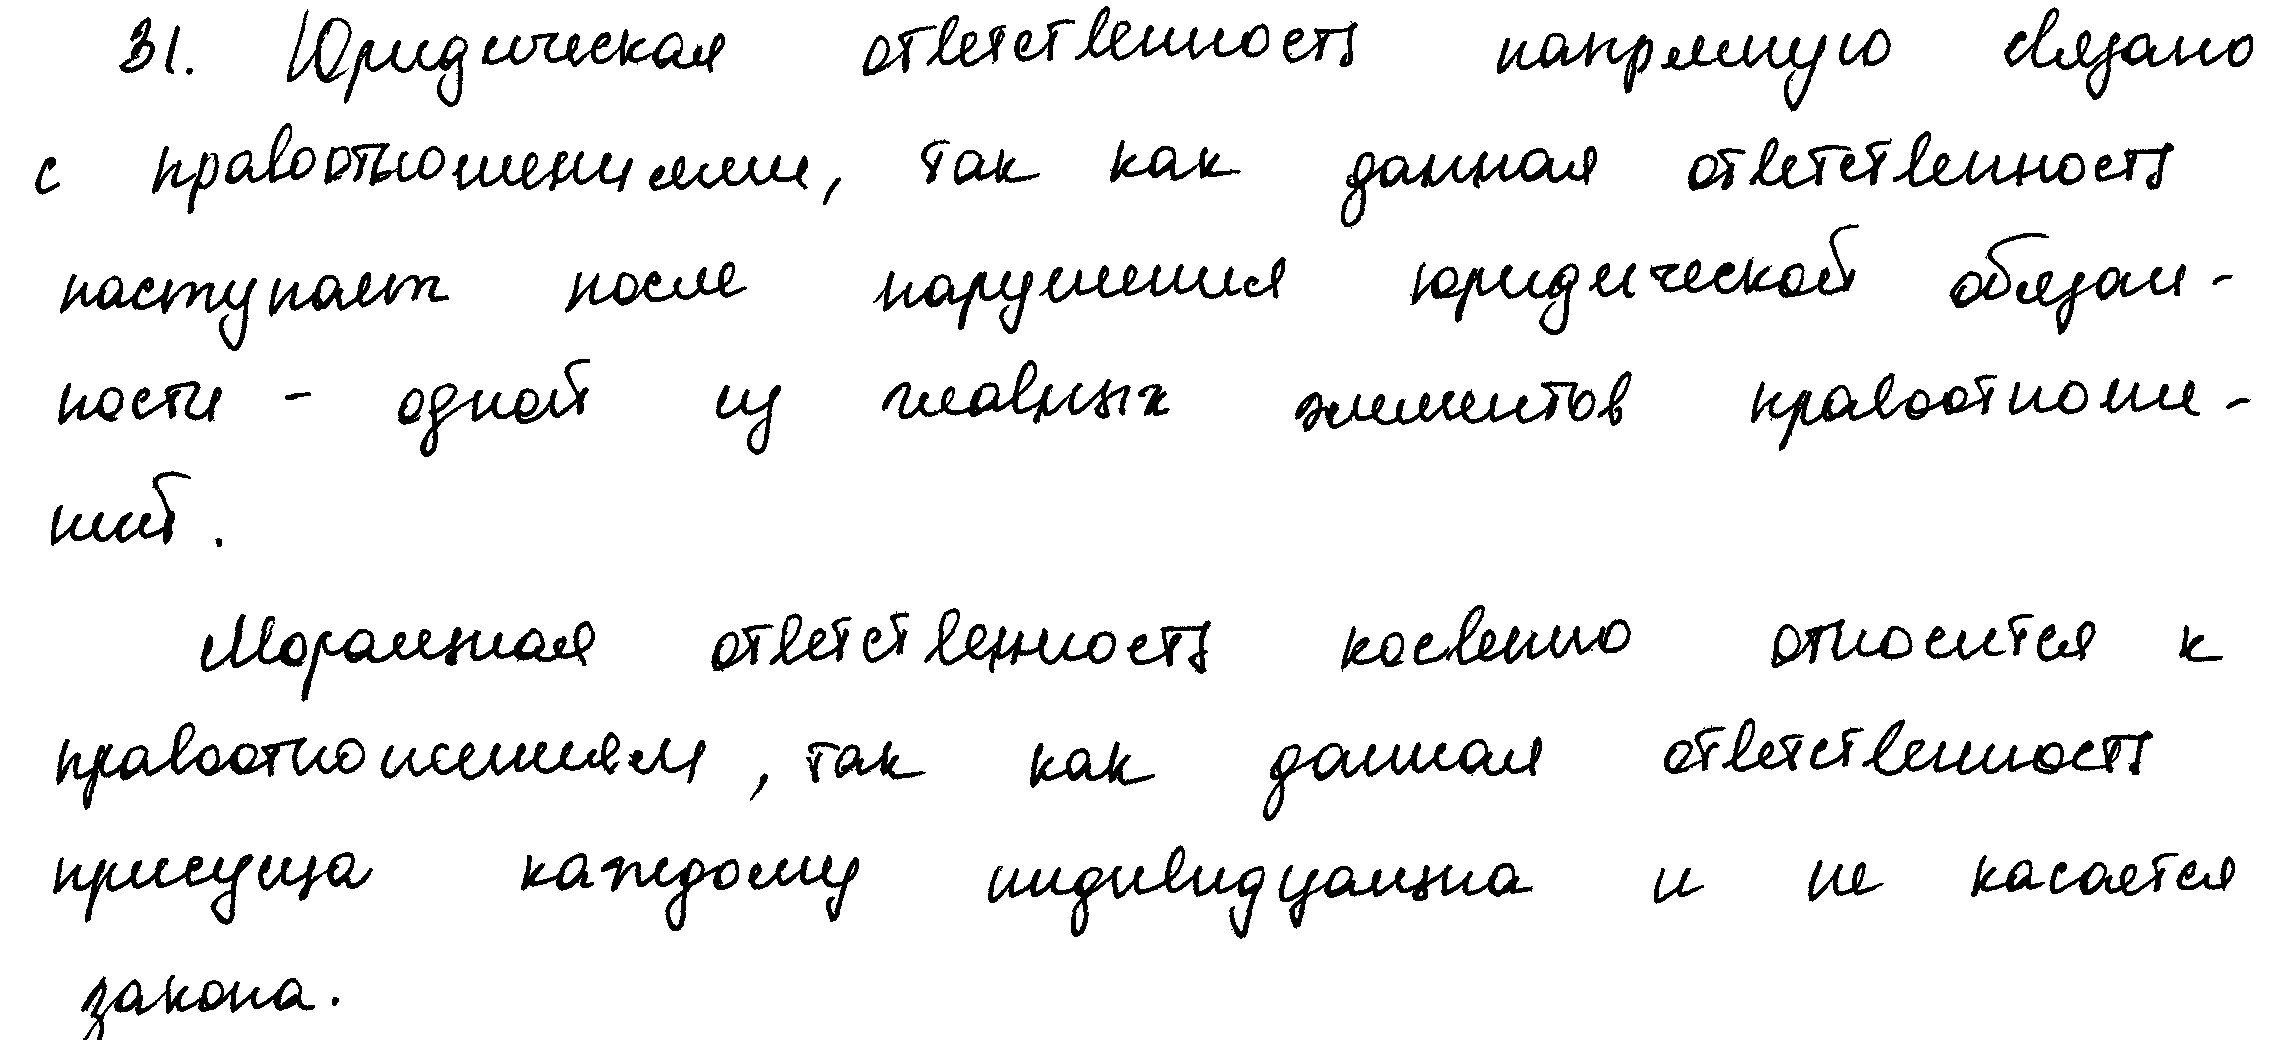 31. Юридическая ответственность напрямую связано
с правоотношениями, так как данная ответственность
наступает после нарушения юридической обязан-
ности - одной из главных элементов правоотноше-
ний.
Моральная ответственность косвенно относится к
правоотношениям, так как данная ответственность
присуща каждому индивидуально и не касается
закона.